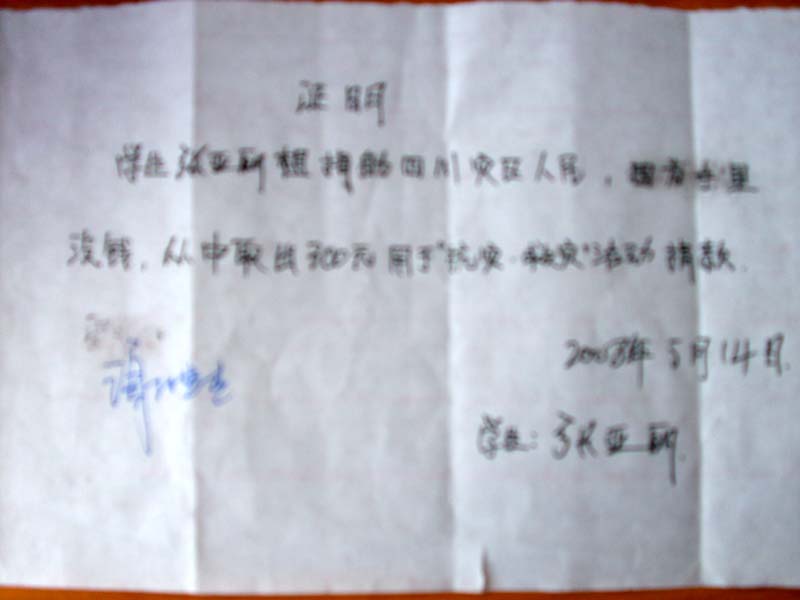 证明
学生张亚丽想捐助四川灾区人民，因为卡里
没钱，从中取出300元用于"抗灾·救灾"活动捐款.
2008年5月14日.
学生：张亚丽.